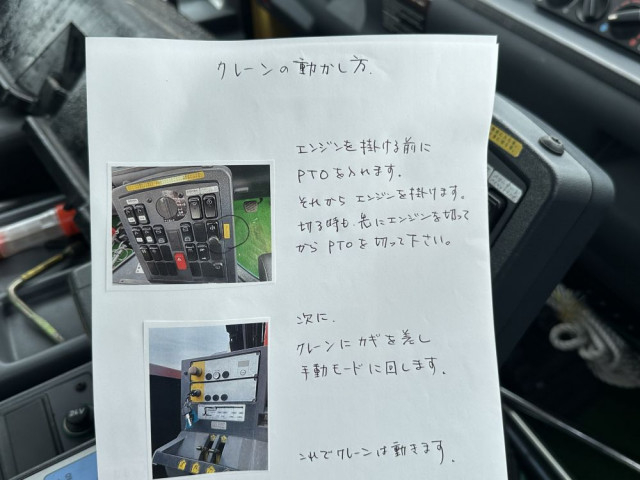 クレーンの動かし方.
エンジンを掛ける前に
PTOを入れます。
それから エンジンを掛けます。
切る時も、先にエンジンを切って
から PTOを切って下さい。
次に、
クレーンに カギを差し
手動モードに回します.
これでクレーンは動きます.